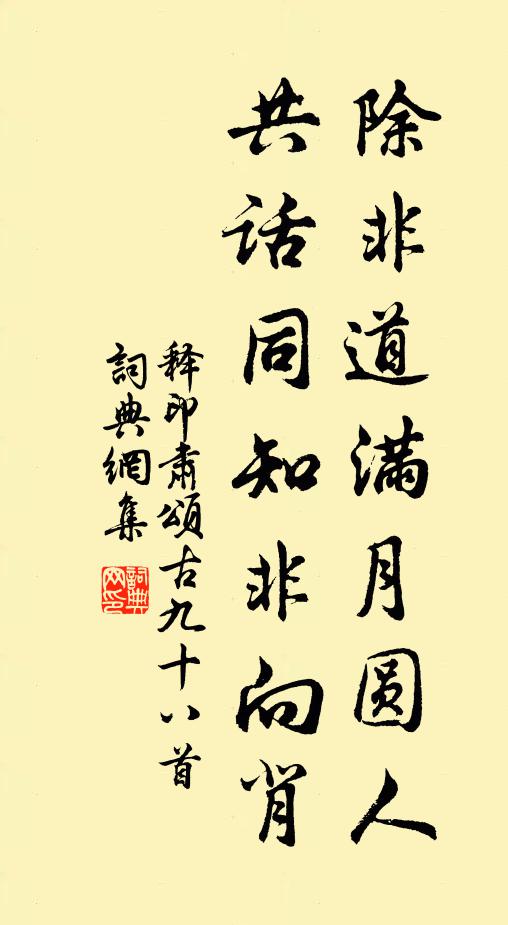 除非道满月圆人
共话同知非向背
释印肃颂古九十八首
詞典網集
詞典网印